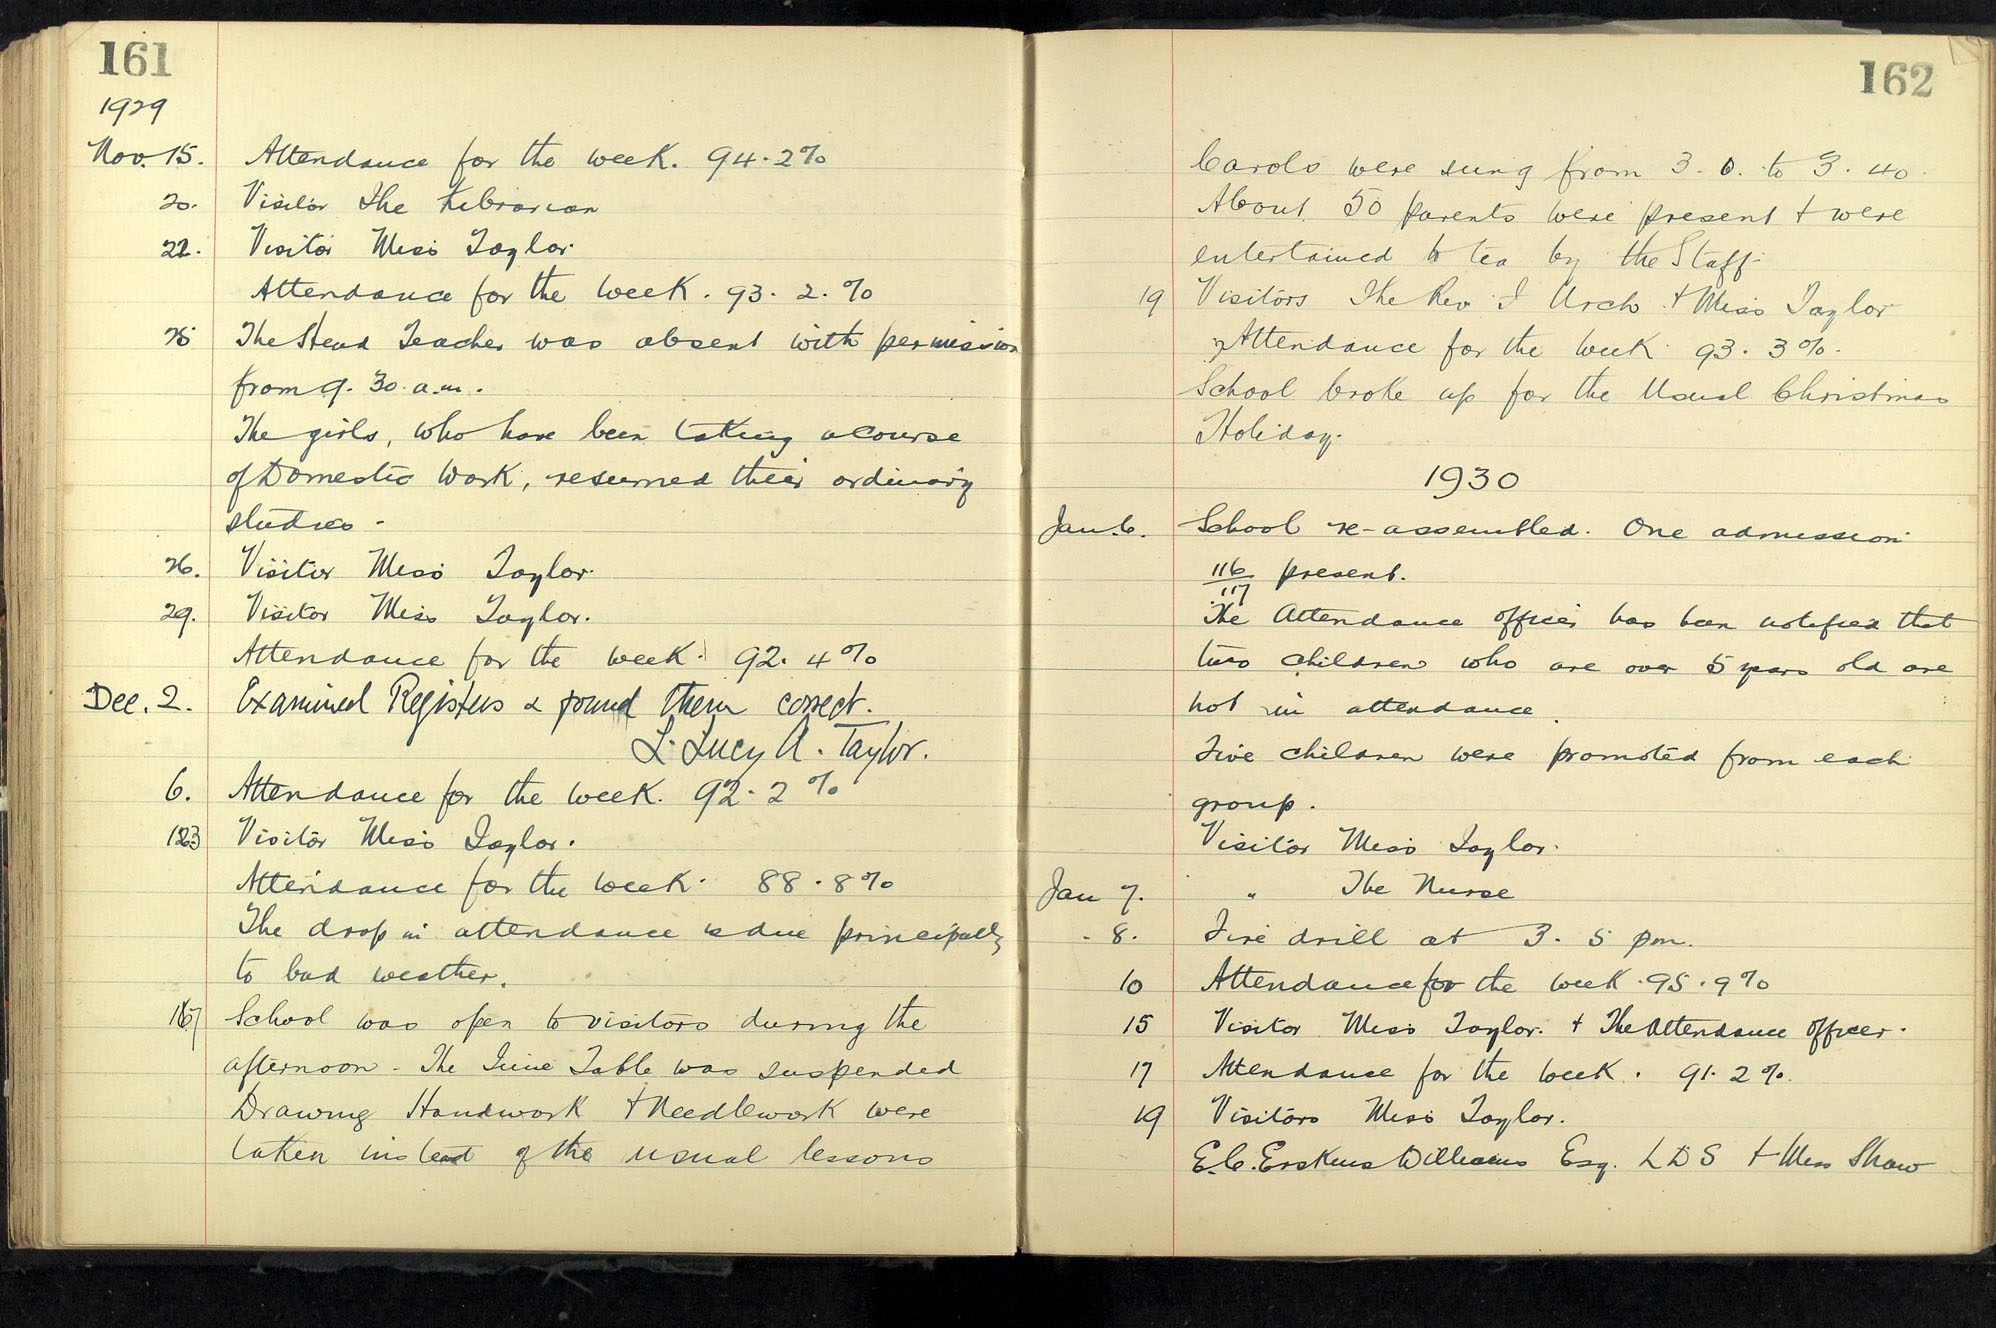 161
1929
Nov. 15. Attendance for the week. 94.2%
20. Visitor The Librarian
22. Visitor Miss Taylor.
Attendance for the week. 93.2.%
25 The Head Teacher was absent with permission
from 9.30.a.m.
The girls, who have been taking a course
of Domestic Work, resumed their ordinary
studies.
26. Visitor Miss Taylor.
29. Visitor Miss Taylor.
Attendance for the week. 92.4%
Dec. 2. Examined Registers & found them correct.
L. Lucy A. Taylor.
6. Attendance for the week. 92.2%
13 Visitor Miss Taylor.
Attendance for the week. 88.8%
The drop in attendance is due principally
to bad weather.
17 School was open to visitors during the
afternoon. The Time Table was suspended
Drawing Handwork + Needlework were
taken instead of the usual lessons
162
Carols were sung from 3.0. to 3.40.
About 50 parents were present + were
entertained to tea by the Staff.
19 Visitors The Rev. J Arch + Miss Taylor
Attendance for the week 93.3%.
School broke up for the Usual Christmas
Holiday.
1930
Jan. 6. School re-assembled. One admission
116/117 present.
The Attendance officer has been notified that
two children who are over 5 years old are
not in attendance.
Five children were promoted from each
group.
Visitor Miss Taylor.
Jan 7. " The Nurse
- 8. Fire drill at 3.5 pm.
10 Attendance for the week. 95.9%
15 Visitor Miss Taylor. + The Attendance Officer.
17 Attendance for the week. 91.2%.
19 Visitors Miss Taylor.
E.C. Erskine Williams Esq. L D S + Miss Shaw